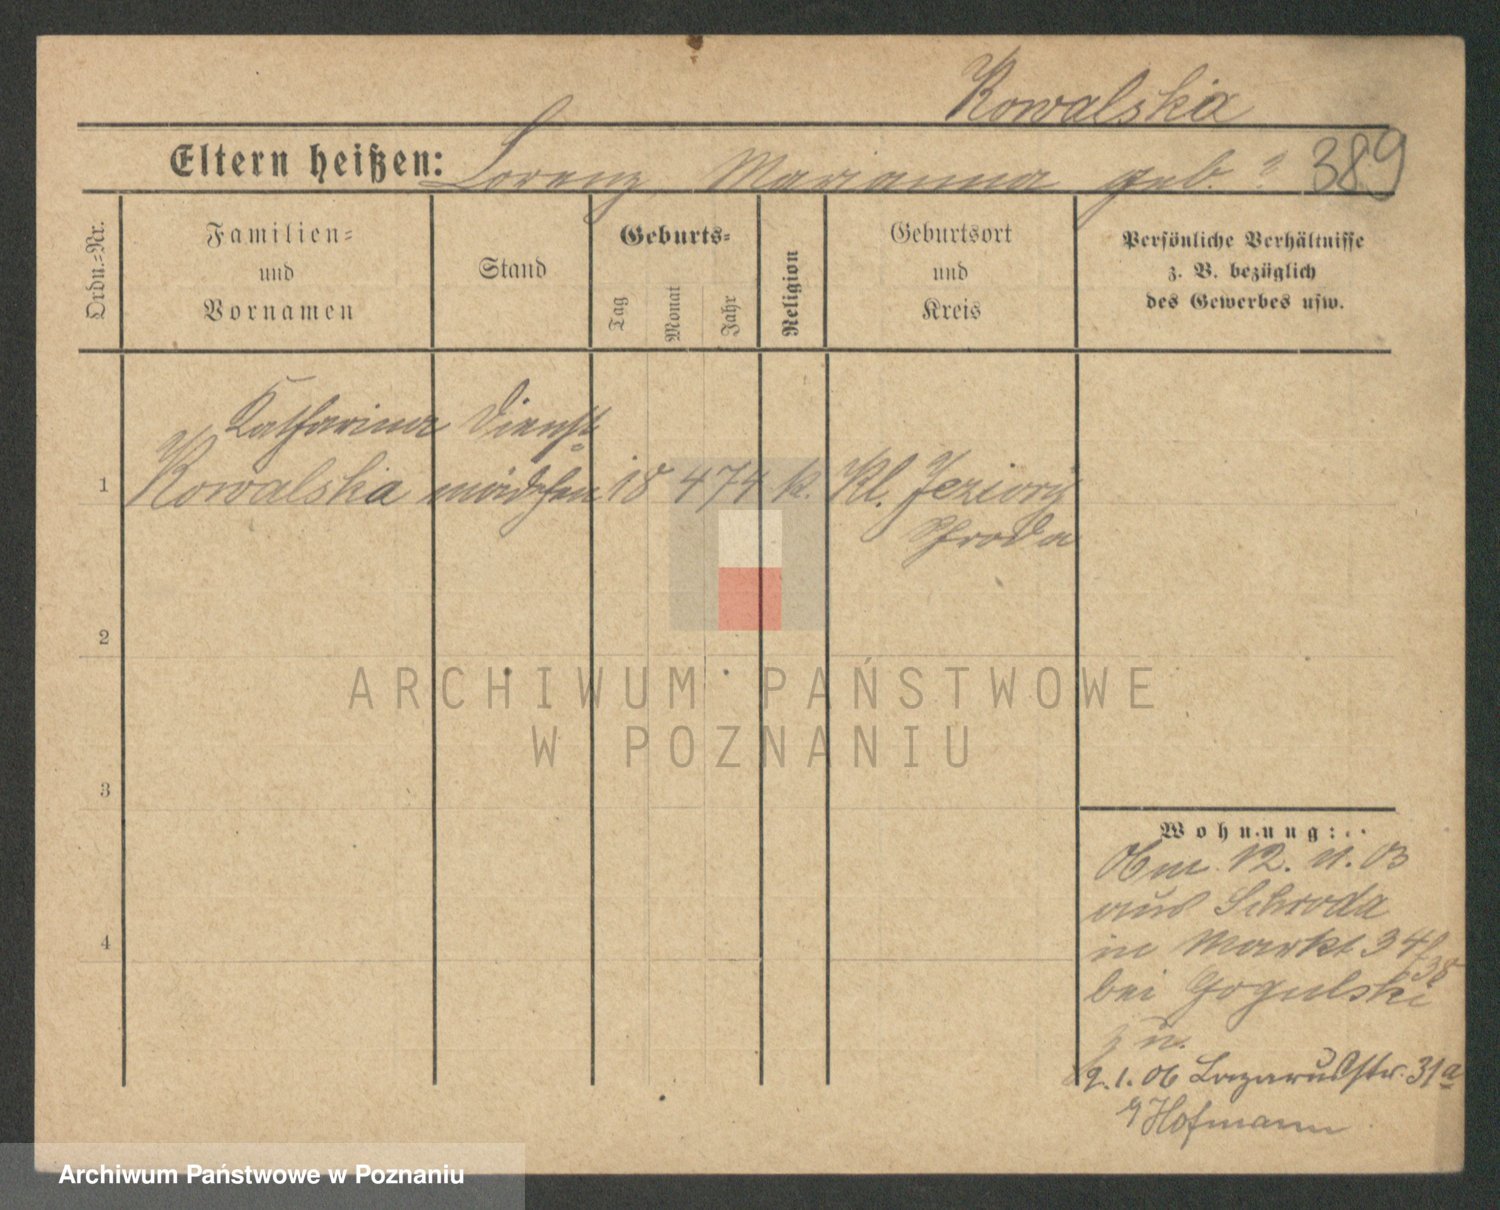 Kowalska
Eltern heißen: Lorenz Marianna geb. ? 389
Ordn.=Nr.
Familien=
und
Vornamen
Stand
Geburts=
Tag
Monat
Jahr
Religion
Geburtsort
und
Kreis
Persönliche Verhältnisse
z. B. bezüglich
des Gewerbes usw.
Katharina Dienst
1 Kowalska mädchen 18 4 74 k. Kl. Jeziory
Schroda
2
3
4
Wohnung:
12. 11. 03
aus Schroda
in Markt 34/
38
bei Gogulski
zu.
2.1.06 Lazarusstr. 31a
Hofmann
ARCHIWUM PAŃSTWOWE
W POZNANIU
Archiwum Państwowe w Poznaniu